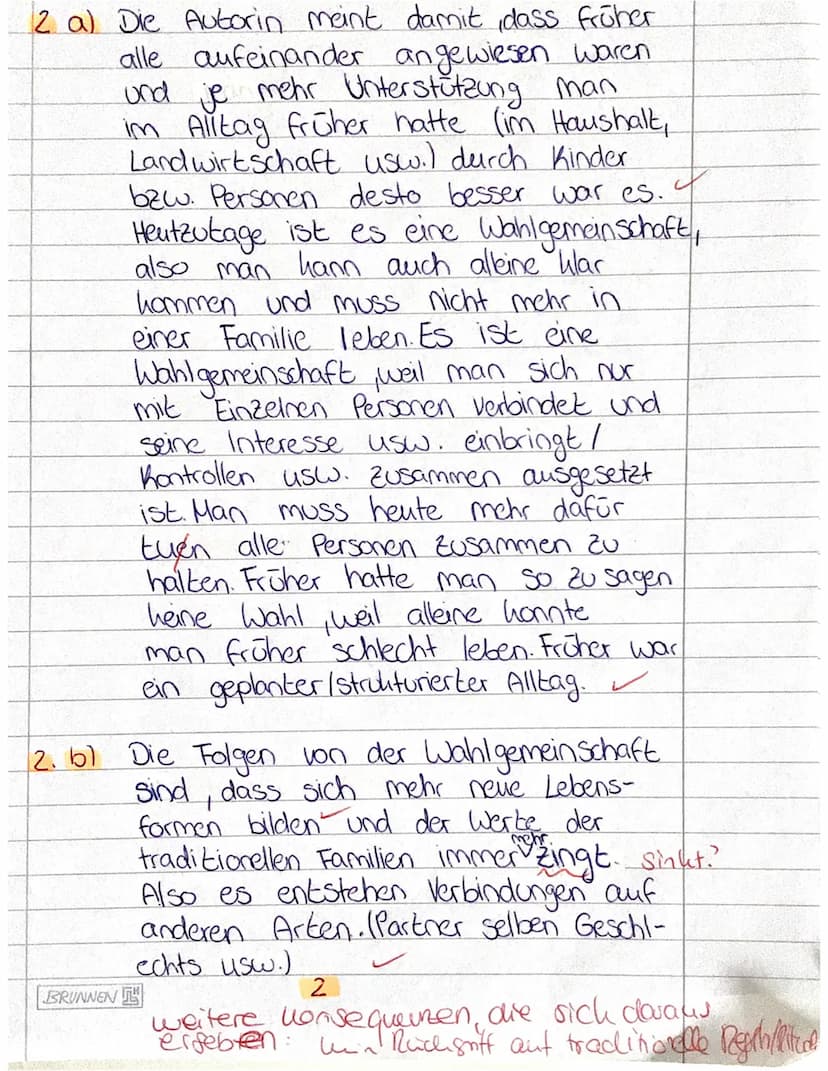 2 a) Die Autorin meint damit, dass früher
alle aufeinander angewiesen waren
und je mehr Unterstützung man
im Alltag früher hatte (im Haushalt,
Landwirtschaft usw.) durch Kinder
bzw. Personen desto besser war es.
Heutzutage ist es eine Wahlgemeinschaft,
also man kann auch alleine klar
kommen und muss nicht mehr in
einer Familie leben. Es ist eine
Wahlgemeinschaft, weil man sich nur
mit Einzelnen Personen verbindet und
seine Interesse usw. einbringt /
Kontrollen usw. zusammen ausgesetzt
ist. Man muss heute mehr dafür
tuen alle Personen zusammen zu
halten. Früher hatte man so zu sagen
keine Wahl, weil alleine konnte
man früher schlecht leben. Früher war
ein geplanter/strukturierter Alltag.
2. b) Die Folgen von der Wahlgemeinschaft
sind, dass sich mehr neue Lebens-
formen bilden und der Werte der
traditionellen Familien immer mehr zingt. sinkt?
Also es entstehen Verbindungen auf
anderen Arten. (Partner selben Geschl-
echts usw.)
BRUNNEN 2
weitere Konsequenzen, die sich daraus
ergeben: Rückgriff auf traditionelle